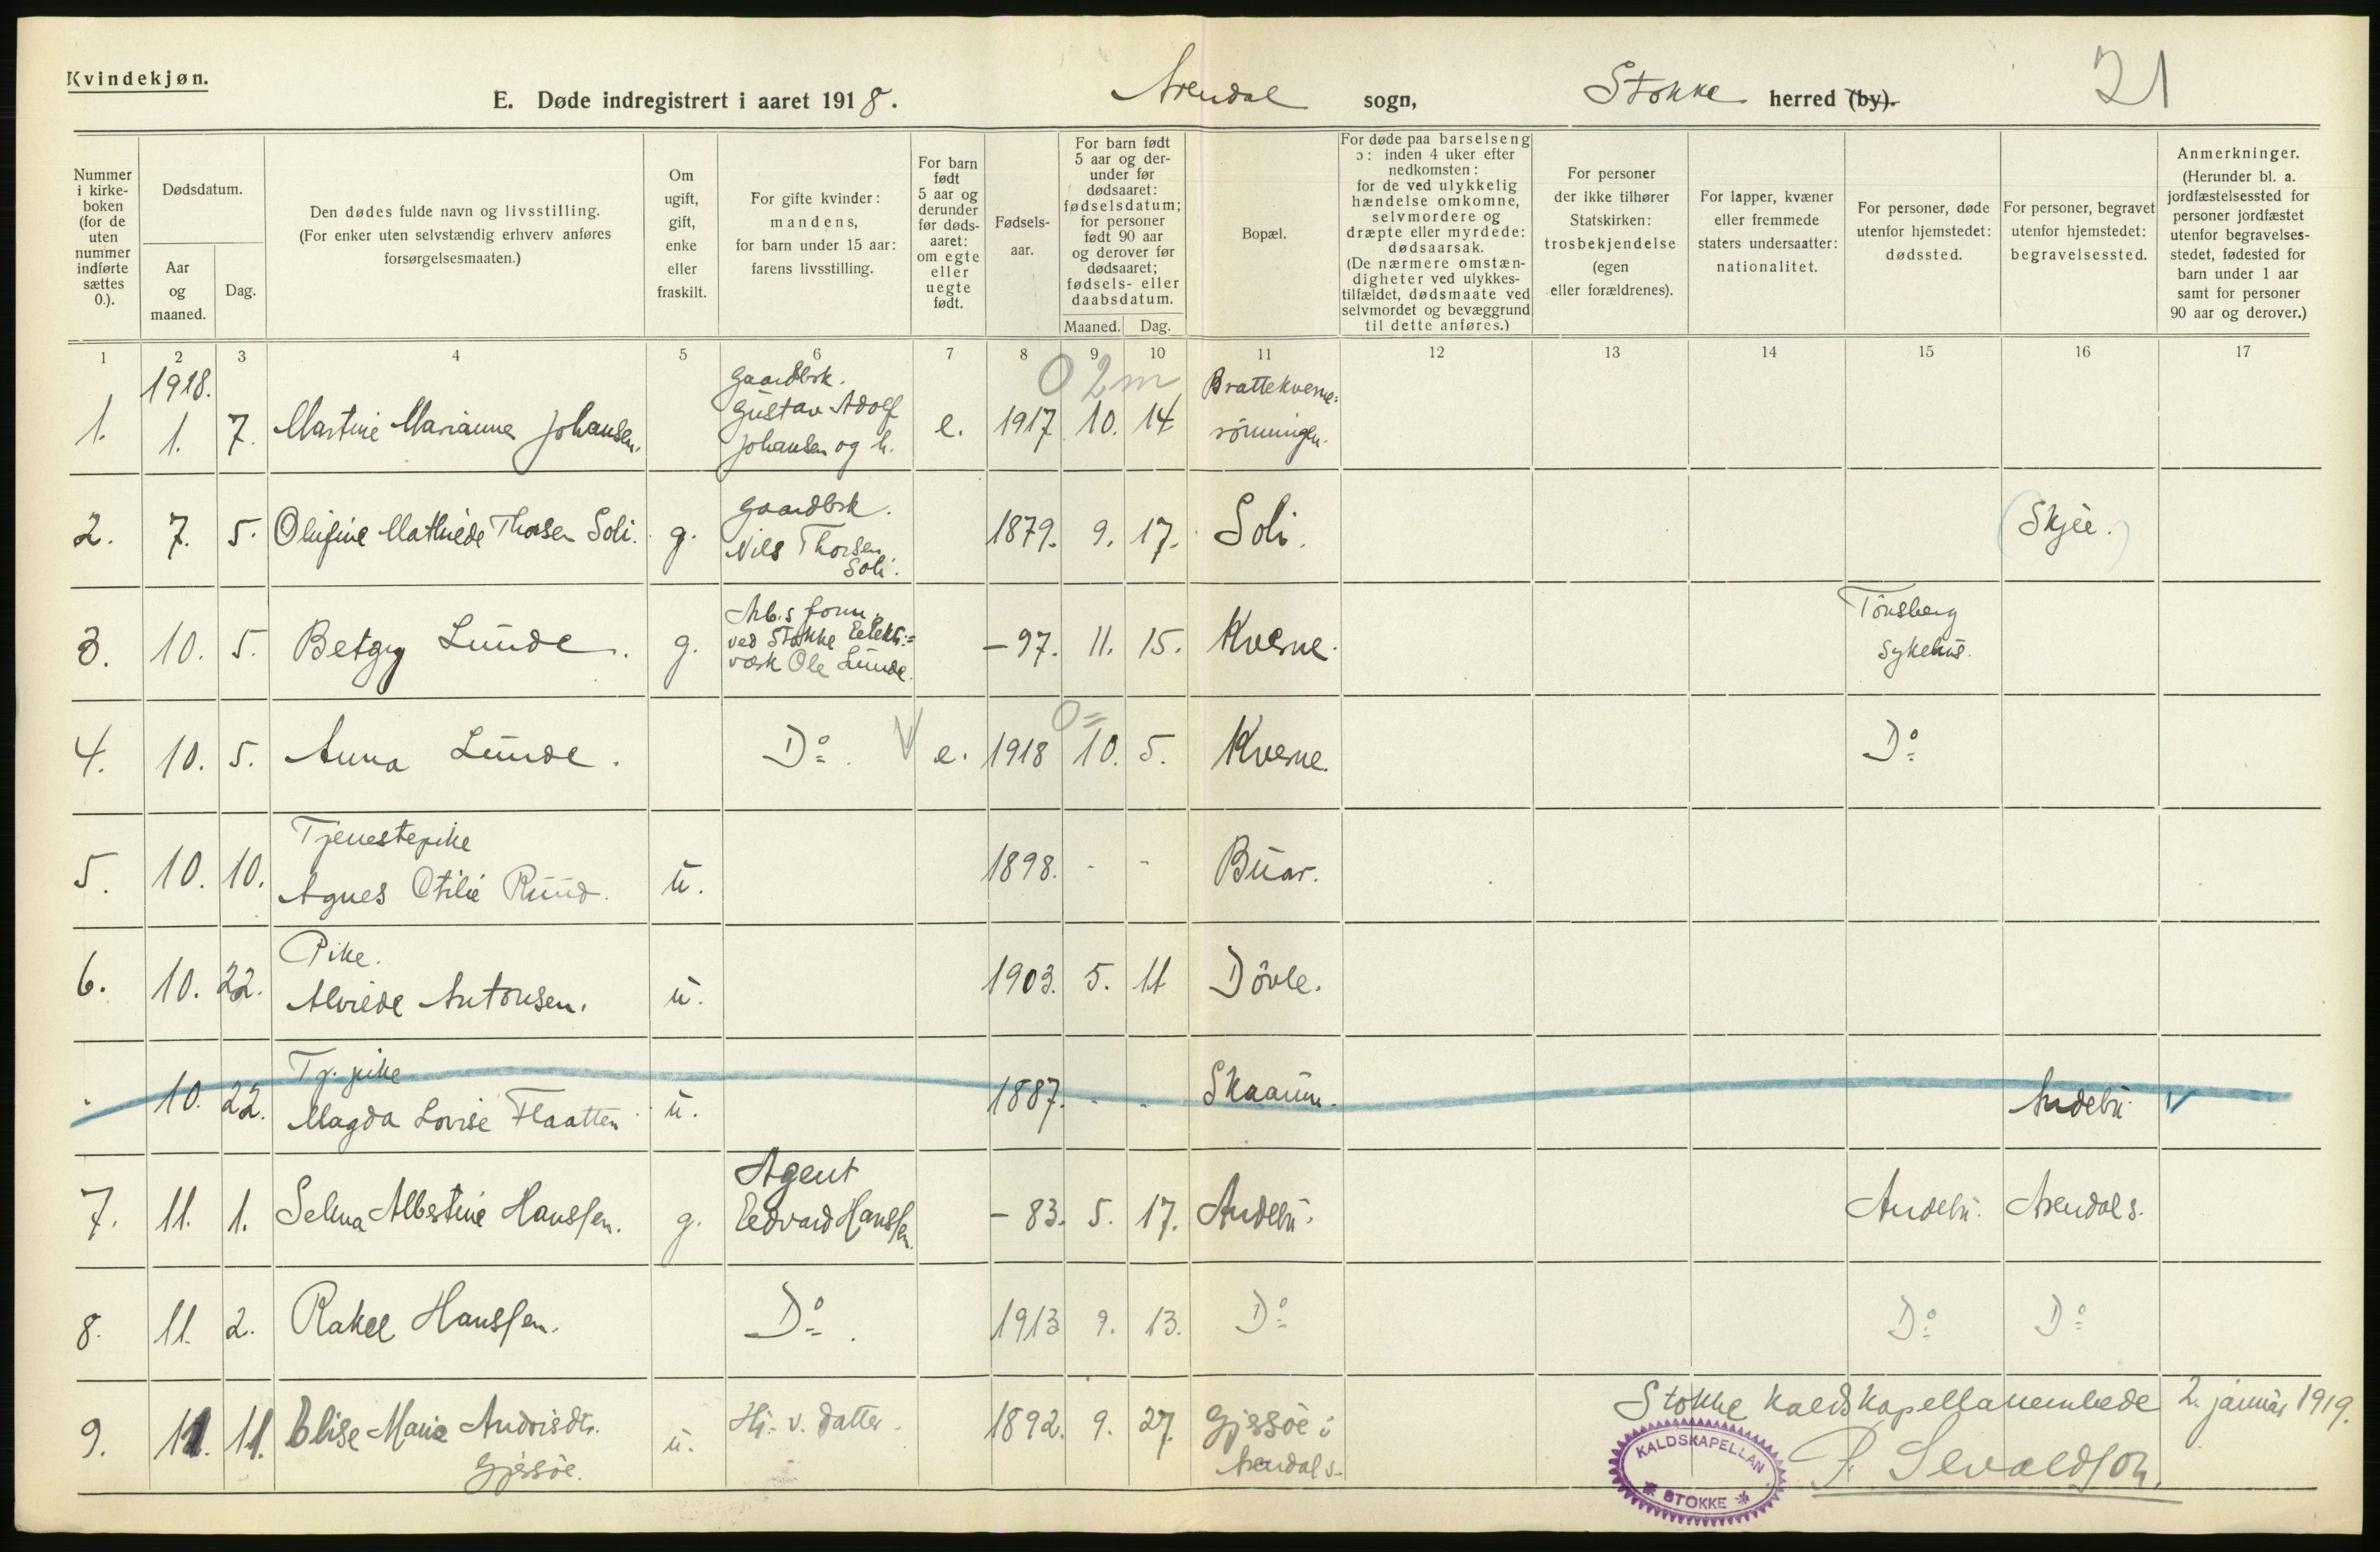 Kvindekjøn.
E. Døde indregistrert i aaret 1918. Arendal sogn, Stokke herred (by).
21
Nummer i kirke-boken (for de uten nummer indførte sættes 0.).
Dødsdatum.
Aar og maaned.
Dag.
Den dødes fulde navn og livsstilling.
(For enker uten selvstændig erhverv anføres forsørgelsesmaaten.)
Om ugift, gift, enke eller fraskilt.
For gifte kvinder: mandens, for barn under 15 aar: farens livsstilling.
For barn født 5 aar og derunder før døds-aaret: om egte eller uegte født.
Fødsels-aar.
For barn født 5 aar og der-under før dødsaaret: fødselsdatum; for personer født 90 aar og derover før dødsaaret; fødsels- eller daabsdatum.
Maaned.
Dag.
Bopæl.
For døde paa barselseng ɔ: inden 4 uker efter nedkomsten: for de ved ulykkelig hændelse omkomne, selvmordere og dræpte eller myrdede: dødsaarsak.
(De nærmere omstæn-digheter ved ulykkes-tilfældet, dødsmaate ved selvmordet og bevæggrund til dette anføres.)
For personer der ikke tilhører Statskirken: trosbekjendelse (egen eller forældrenes).
For lapper, kvæner eller fremmede staters undersaatter: nationalitet.
For personer, døde utenfor hjemstedet: dødssted.
For personer, begravet utenfor hjemstedet: begravelsessted.
Anmerkninger.
(Herunder bl. a. jordfæstelsessted for personer jordfæstet utenfor begravelses-stedet, fødested for barn under 1 aar samt for personer 90 aar og derover.)
1 2 3 4 5 6 7 8 9 10 11 12 13 14 15 16 17
1918.
0 2 m
1. 1. 7. Martine Marianne Johansen. Gaardbrk. Gustav Adolf Johansen og h. e. 1917 10. 14 Brattekverne-rönningen.
2. 7. 5. Olufine Mathilde Thorsen Soli. g. Gaardbrk. Nils Thorsen Soli. 1879. 9. 17. Soli. (Skjee.)
3. 10. 5. Betzy Lunde. g. Arb.s form. ved Stokke Elektr.=værk Ole Lunde. -97. 11. 15. Kverne. Tönsberg Sykehus.
0=
4. 10. 5. Anna Lunde. Do. V e. 1918 10. 5. Kverne. Do
5. 10. 10. Tjenestepike Agnes Otilie Ruud. u. 1898. - - Buar.
6. 10. 22. Pike. Alvilde Antonsen. u. 1903. 5. 11 Dövle.
. 10. 22. Tj. pike Magda Lovise Flaatten u. 1887. - - Skaaum. Andebu. V
7. 11. 1. Selma Albertine Hanssen. g. Agent Edvard Hanssen. -83. 5. 17. Andebu. Andebu. Arendal s.
8. 11. 2. Rakel Hanssen. Do. 1913 9. 13. Do Do Do
9. 11. 11. Elise Marie Andrisdtr. Gjersöe. u. Hj. v. datter. 1892. 9. 27. Gjersöe i Arendal s.
Stokke kaldskapellanembede 2. januar 1919.
P. Sevaldson.
KALDSKAPELLAN
* STOKKE *